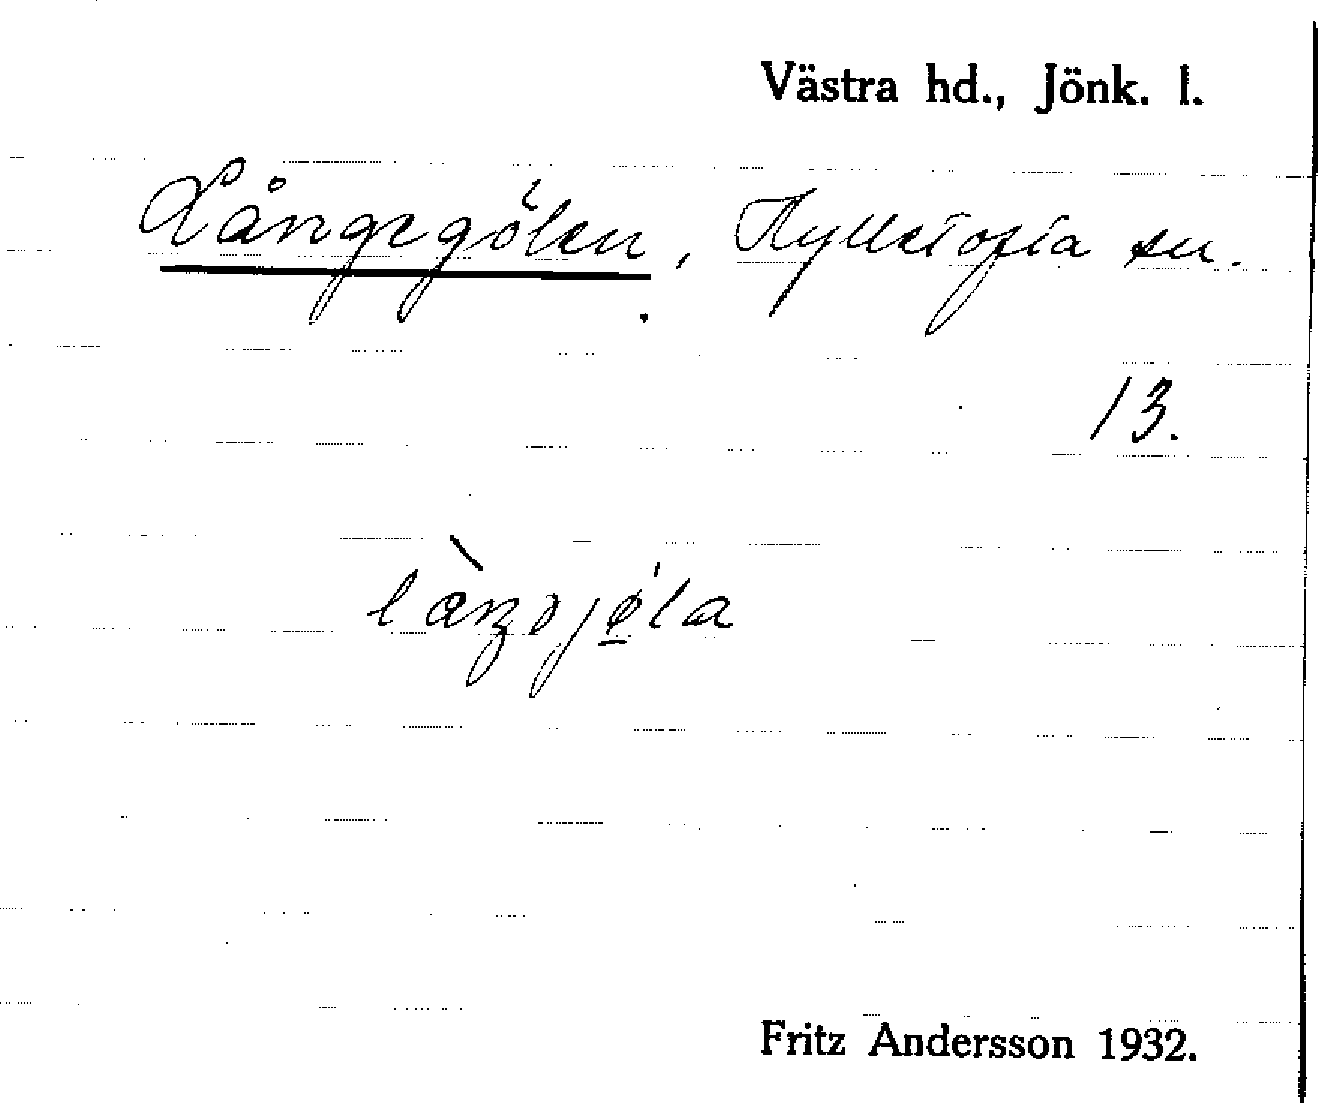 Västra hd., Jönk. l.
Långegölen, Hylletofta sn.
13.
Fritz Andersson 1932.